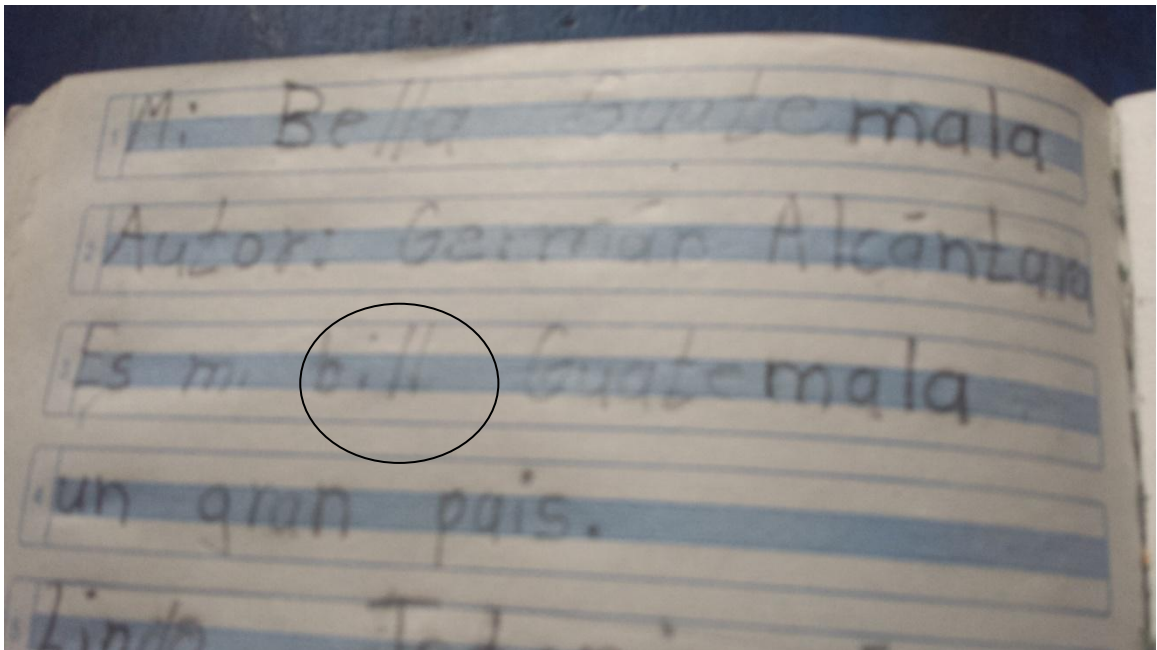 Mi Bella Guatemala
Autor: Germán Alcántara
Es mi bill Guatemala
un gran pais.
Lindo